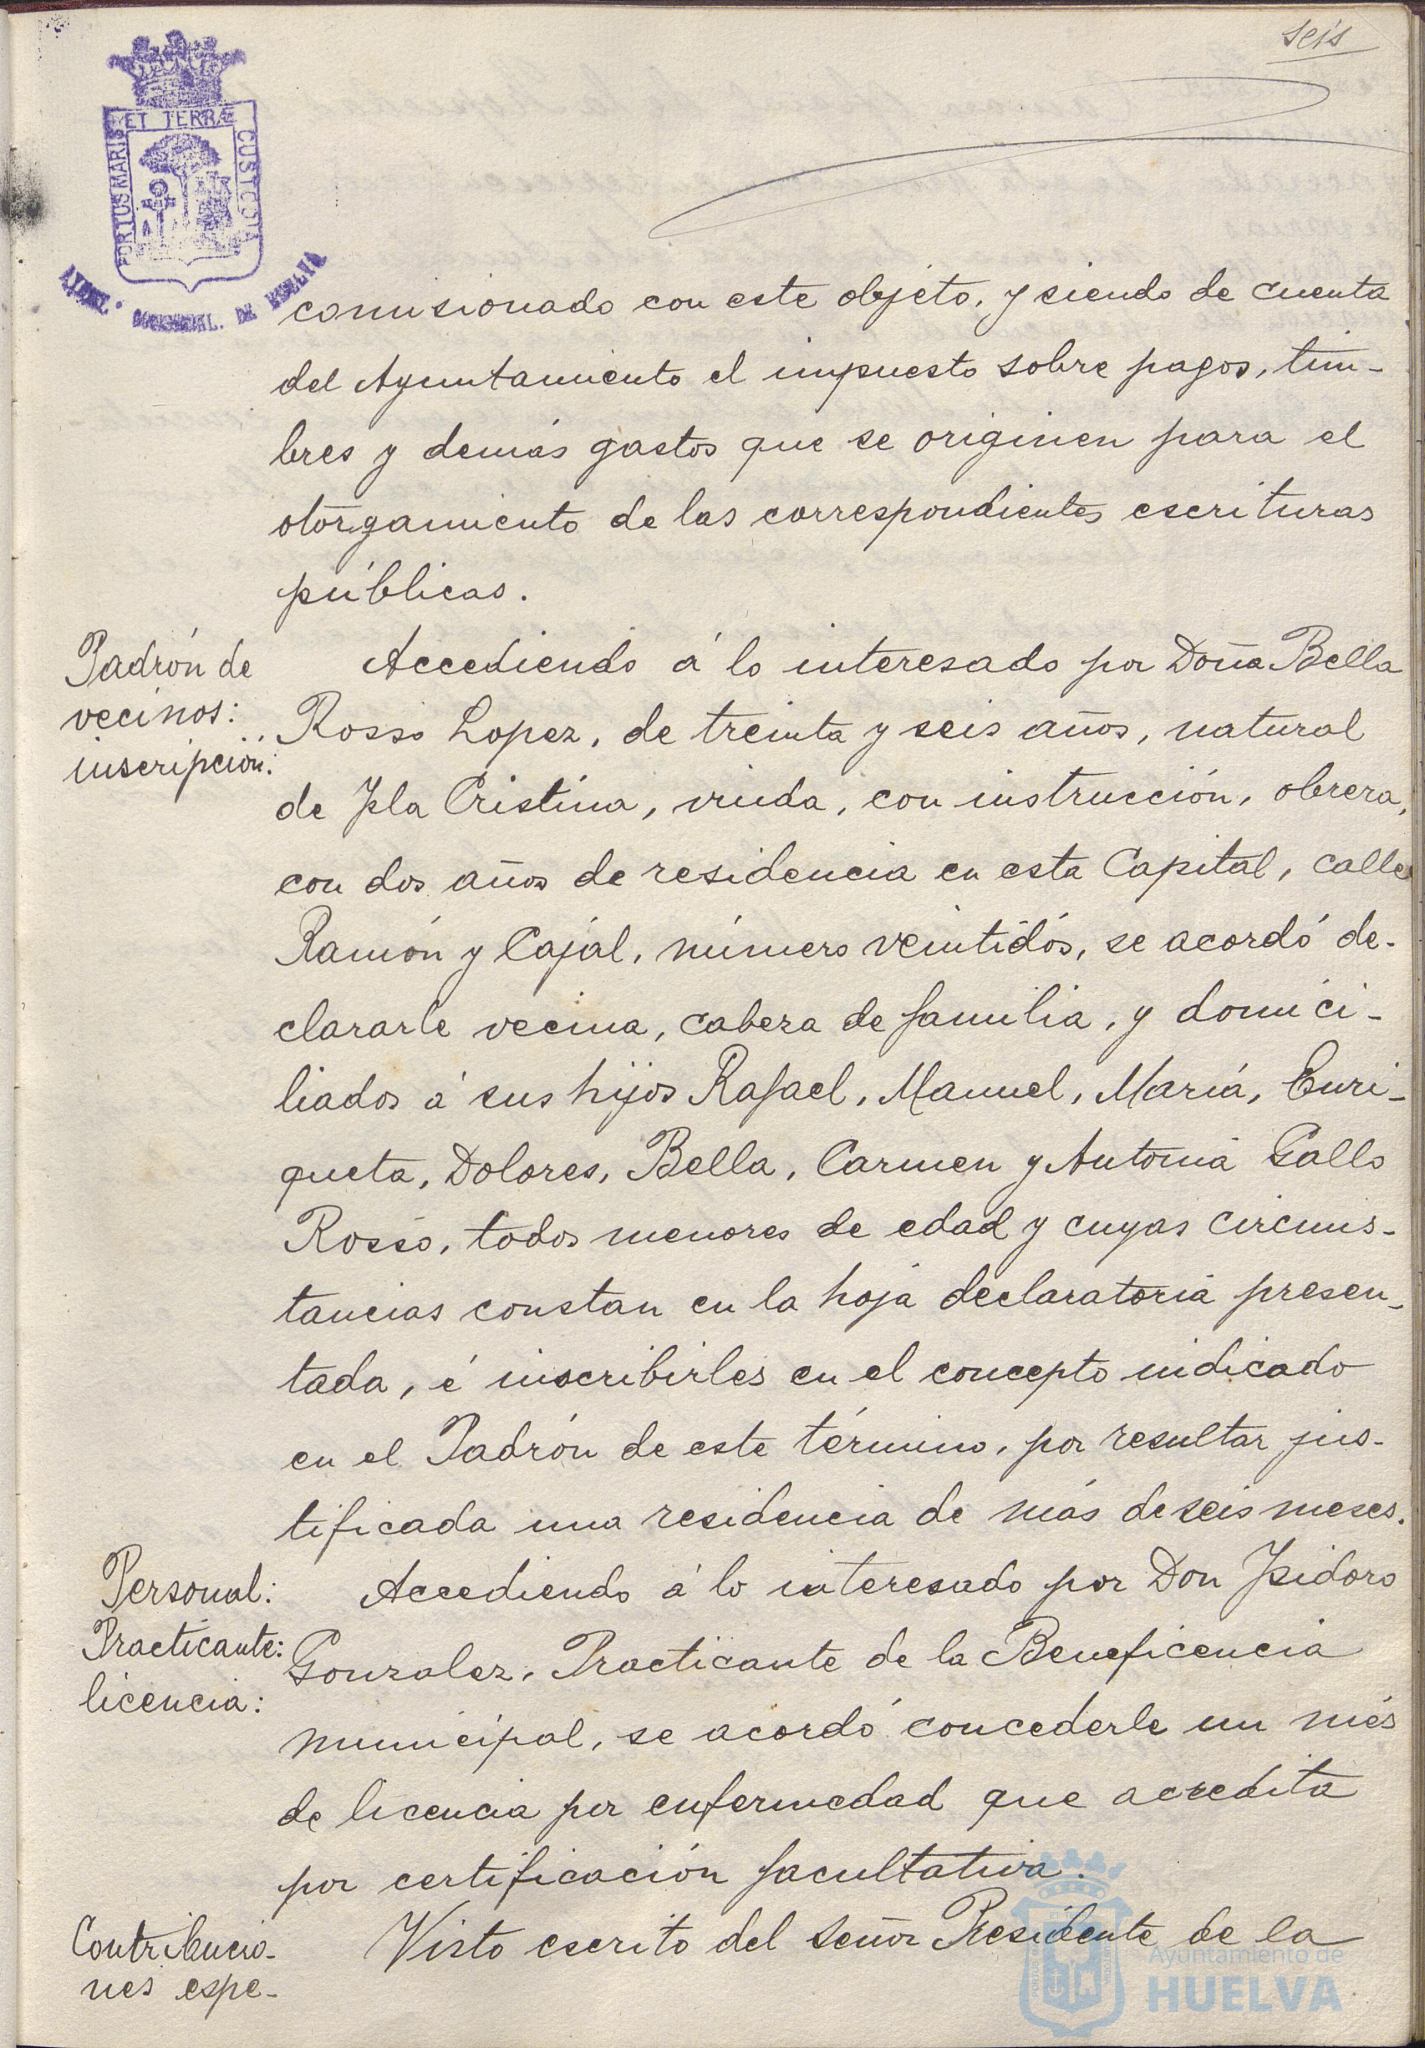 seis
PORTUS MARIS ET TERRÆ CUSTODIA
DE HUELVA
comisionado con este objeto, y siendo de cuenta
del Ayuntamiento el impuesto sobre pagos, tim-
bres y demás gastos que se originen para el
otorgamiento de las correspondientes escrituras
públicas.
Padrón de
vecinos:
inscripción:
Accediendo á lo interesado por Doña Bella
Rosso Lopez, de treinta y seis años, natural
de Isla Cristina, viuda, con instrucción, obrera,
con dos años de residencia en esta Capital, calle
Ramón y Cajal, número veintidós, se acordó de-
clararle vecina, cabeza de familia, y domici-
liados á sus hijos Rafael, Manuel, María, Enri-
queta, Dolores, Bella, Carmen y Antonia Gallo
Rosso, todos menores de edad y cuyas circuns-
tancias constan en la hoja declaratoria presen-
tada, é inscribirles en el concepto indicado
en el Padrón de este término, por resultar jus-
tificada una residencia de más de seis meses.
Personal:
Practicante:
licencia:
Accediendo á lo interesado por Don Isidoro
Gonzalez, Practicante de la Beneficencia
municipal, se acordó concederle un més
de licencia por enfermedad que acredita
por certificación facultativa.
Contribucio-
nes espe-
Visto escrito del señor Presidente de la
Ayuntamiento de
HUELVA